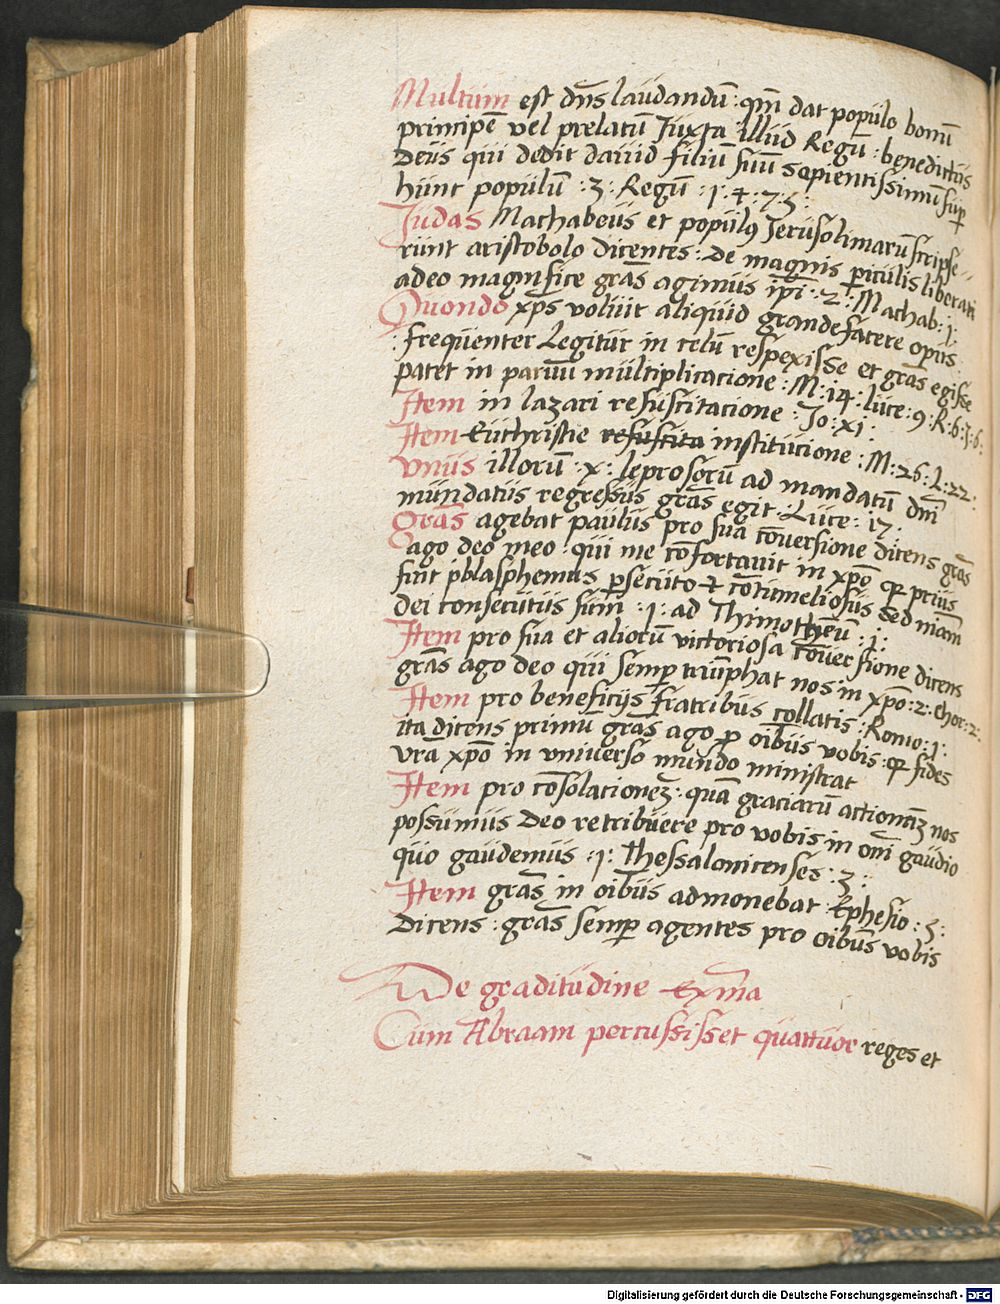 Multum est dn̄s laudandū : qm̄ dat populo bonū
principē vel prelatū Juxta illud Regū : benedictus
Deus qui dedit dauid filiū suū sapientissimū sup̄
hunc populū : 3 : Regū : 1 : 4 : 7 : 5 :
Judas Machabeus et populꝯ Jerusolimarū scripse
runt aristobolo dicentes : De magnis p̱iculis liberati
a deo magnifice grās agimus ip̄i : 2 : Machab : 1 :
Quondo xp̄s voluit aliquid grande facere opus
: frequenter Legitur in celū respexisse et grās egisse
patet in panuū multiplicacione : M : 14 : luce : 9 : R : 6 : J : 6 :
Item in lazari resuscitacione : Jo : xi :
Item Euchristie resuscita institucione : M : 26 : L : 22 :
Vnus illorū : x : leprosorū ad mandatū dn̄i
mundatus regressus grās egit : Luce : 17 :
Grās agebat paulus pro sua cōuersione dicens grās
ago deo meo : qui me cōfortauit in xp̄o qꝛ prius
fui blasphemus p̱secuto⁊ ⁊ cōtumeliosus sed m̄iam
dei consecutus sum : 1 : ad Thimotheū : 1 :
Item pro sua et aliorū victoriosa cōuersione dicens
grās ago deo qui semp̱ triūphat nos in xp̄o : 2 : Chor : 2 :
Item pro beneficijs fratribus collatis : Romo : 1 :
ita dicens primū grās ago p̱ oībus vobis : qꝛ fides
vrā xp̄o in vniuerso mundo ministrat
Item pro cōsolacioneꝫ : quā graciarū actionēꝫ nos
possumus Deo retribuere pro vobis in om̄i gaudio
quo gaudemus : 1 : Thessalonicenses : 3 :
Item grās in oībus admonebat : Ephesio : 5 :
Dicens : grās semp̱ agentes pro oībus vobis
De graditudine Ex̄ma
Cum Abraam percussisset quattuor reges et
Digitalisierung gefördert durch die Deutsche Forschungsgemeinschaft - DFG